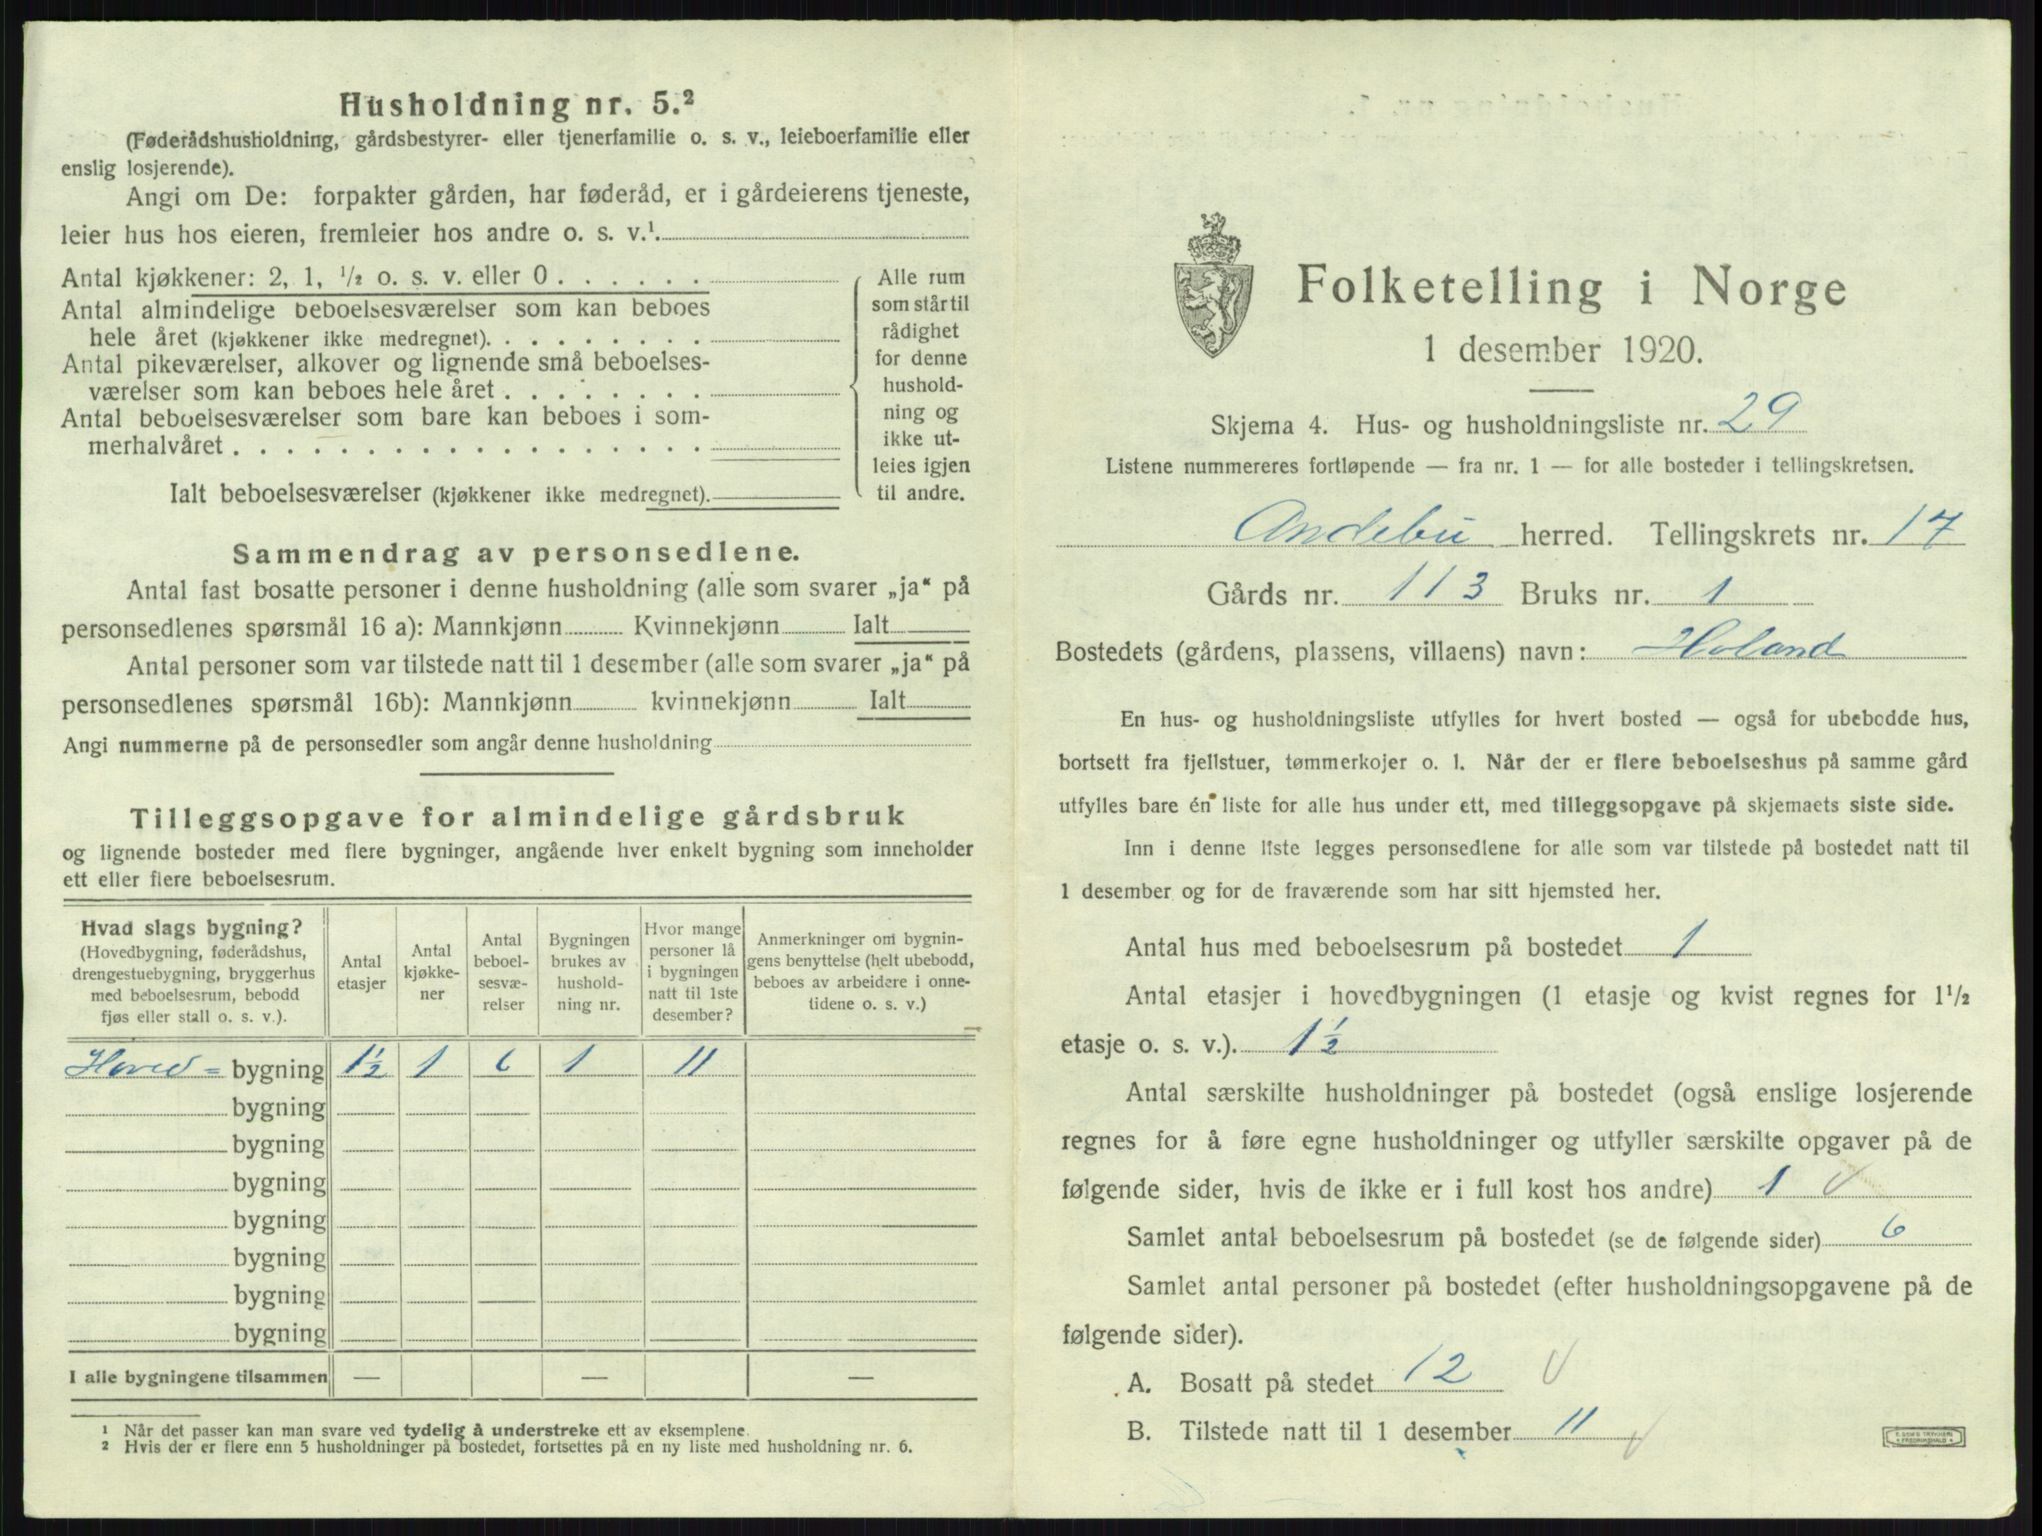 Husholdning nr. 5.²
(Føderådshusholdning, gårdsbestyrer- eller tjenerfamilie o. s. v., leieboerfamilie eller
enslig losjerende).
Angi om De: forpakter gården, har føderåd, er i gårdeierens tjeneste,
leier hus hos eieren, fremleier hos andre o. s. v.¹
Antal kjøkkener: 2, 1, ½ o. s. v. eller 0 . . . . . .
Antal almindelige beboelsesværelser som kan beboes
hele året (kjøkkener ikke medregnet). . . . . . . . .
Antal pikeværelser, alkover og lignende små beboelses-
værelser som kan beboes hele året . . . . . . . .
Antal beboelsesværelser som bare kan beboes i som-
merhalvåret . . . . . . . . . . . . . . . . . .
Ialt beboelsesværelser (kjøkkener ikke medregnet).
Alle rum
som står til
rådighet
for denne
hushold-
ning og
ikke ut-
leies igjen
til andre.
Sammendrag av personsedlene.
Antal fast bosatte personer i denne husholdning (alle som svarer „ja“ på
personsedlenes spørsmål 16 a): Mannkjønn Kvinnekjønn Ialt
Antal personer som var tilstede natt til 1 desember (alle som svarer „ja“ på
personsedlenes spørsmål 16b): Mannkjønn kvinnekjønn Ialt
Angi nummerne på de personsedler som angår denne husholdning
Tilleggsopgave for almindelige gårdsbruk
og lignende bosteder med flere bygninger, angående hver enkelt bygning som inneholder
ett eller flere beboelsesrum.
Hvad slags bygning?
(Hovedbygning, føderådshus,
drengestuebygning, bryggerhus
med beboelsesrum, bebodd
fjøs eller stall o. s. v.).
Antal
etasjer
Antal
kjøkke-
ner
Antal
beboel-
sesvæ-
relser
Bygningen
brukes av
hushold-
ning nr.
Hvor mange
personer lå
i bygningen
natt til 1ste
desember?
Anmerkninger om bygnin-
gens benyttelse (helt ubebodd,
beboes av arbeidere i onne-
tidene o. s. v.)
Hoved= bygning 1½ 1 6 1 11
bygning
bygning
bygning
bygning
bygning
bygning
bygning
I alle bygningene tilsammen — — —
¹ Når det passer kan man svare ved tydelig å understreke ett av eksemplene.
² Hvis der er flere enn 5 husholdninger på bostedet, fortsettes på en ny liste med husholdning nr. 6.
Folketelling i Norge
1 desember 1920.
Skjema 4. Hus- og husholdningsliste nr. 29
Listene nummereres fortløpende — fra nr. 1 — for alle bosteder i tellingskretsen.
Andebu herred. Tellingskrets nr. 17
Gårds nr. 113 Bruks nr. 1
Bostedets (gårdens, plassens, villaens) navn: Holand
En hus- og husholdningsliste utfylles for hvert bosted — også for ubebodde hus,
bortsett fra fjellstuer, tømmerkojer o. l. Når der er flere beboelseshus på samme gård
utfylles bare én liste for alle hus under ett, med tilleggsopgave på skjemaets siste side.
Inn i denne liste legges personsedlene for alle som var tilstede på bostedet natt til
1 desember og for de fraværende som har sitt hjemsted her.
Antal hus med beboelsesrum på bostedet 1
Antal etasjer i hovedbygningen (1 etasje og kvist regnes for 1½
etasje o. s. v.). 1½
Antal særskilte husholdninger på bostedet (også enslige losjerende
regnes for å føre egne husholdninger og utfyller særskilte opgaver på de
følgende sider, hvis de ikke er i full kost hos andre) 1
Samlet antal beboelsesrum på bostedet (se de følgende sider) 6
Samlet antal personer på bostedet (efter husholdningsopgavene på de
følgende sider).
A. Bosatt på stedet 12
B. Tilstede natt til 1 desember 11